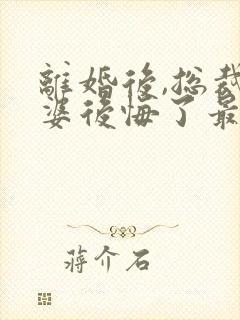 離婚後,總裁
婆後悔了最
蔣介石